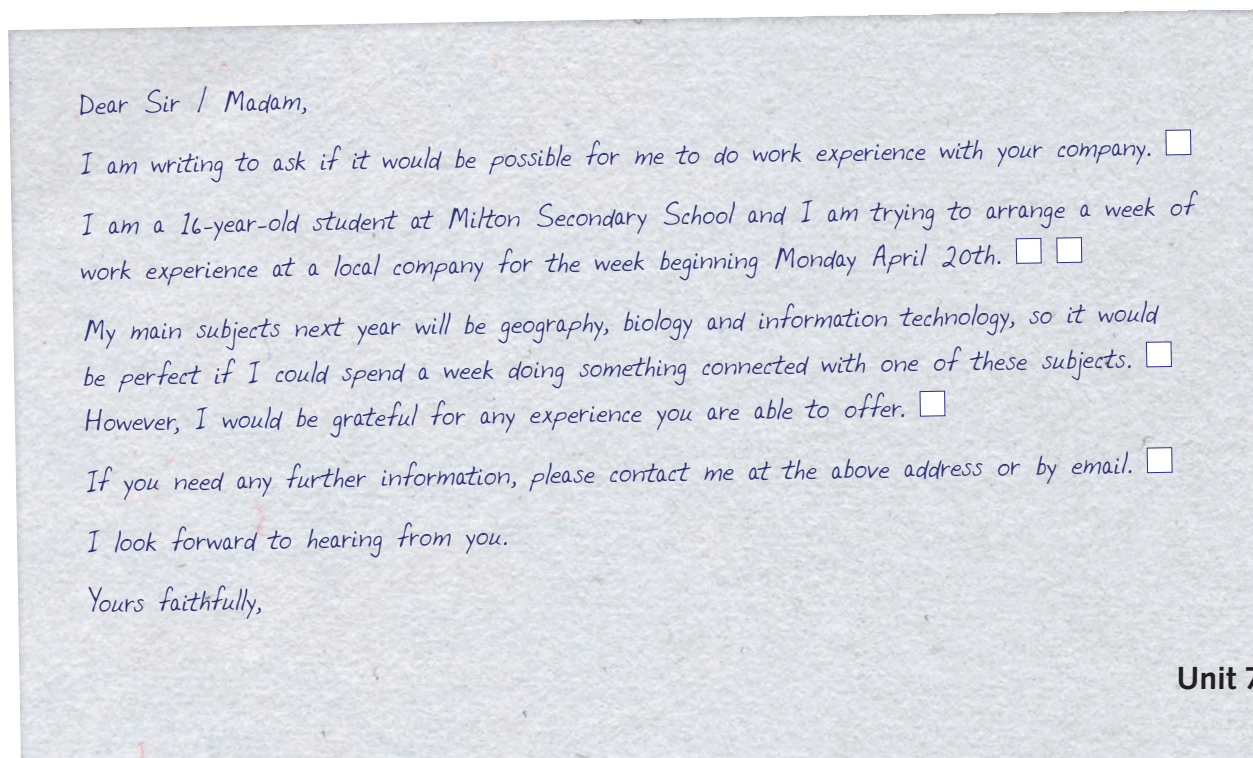 Dear Sir / Madam,
I am writing to ask if it would be possible for me to do work experience with your company.
I am a 16-year-old student at Milton Secondary School and I am trying to arrange a week of
work experience at a local company for the week beginning Monday April 20th.
My main subjects next year will be geography, biology and information technology, so it would
be perfect if I could spend a week doing something connected with one of these subjects.
However, I would be grateful for any experience you are able to offer.
If you need any further information, please contact me at the above address or by email.
I look forward to hearing from you.
Yours faithfully,
Unit 7